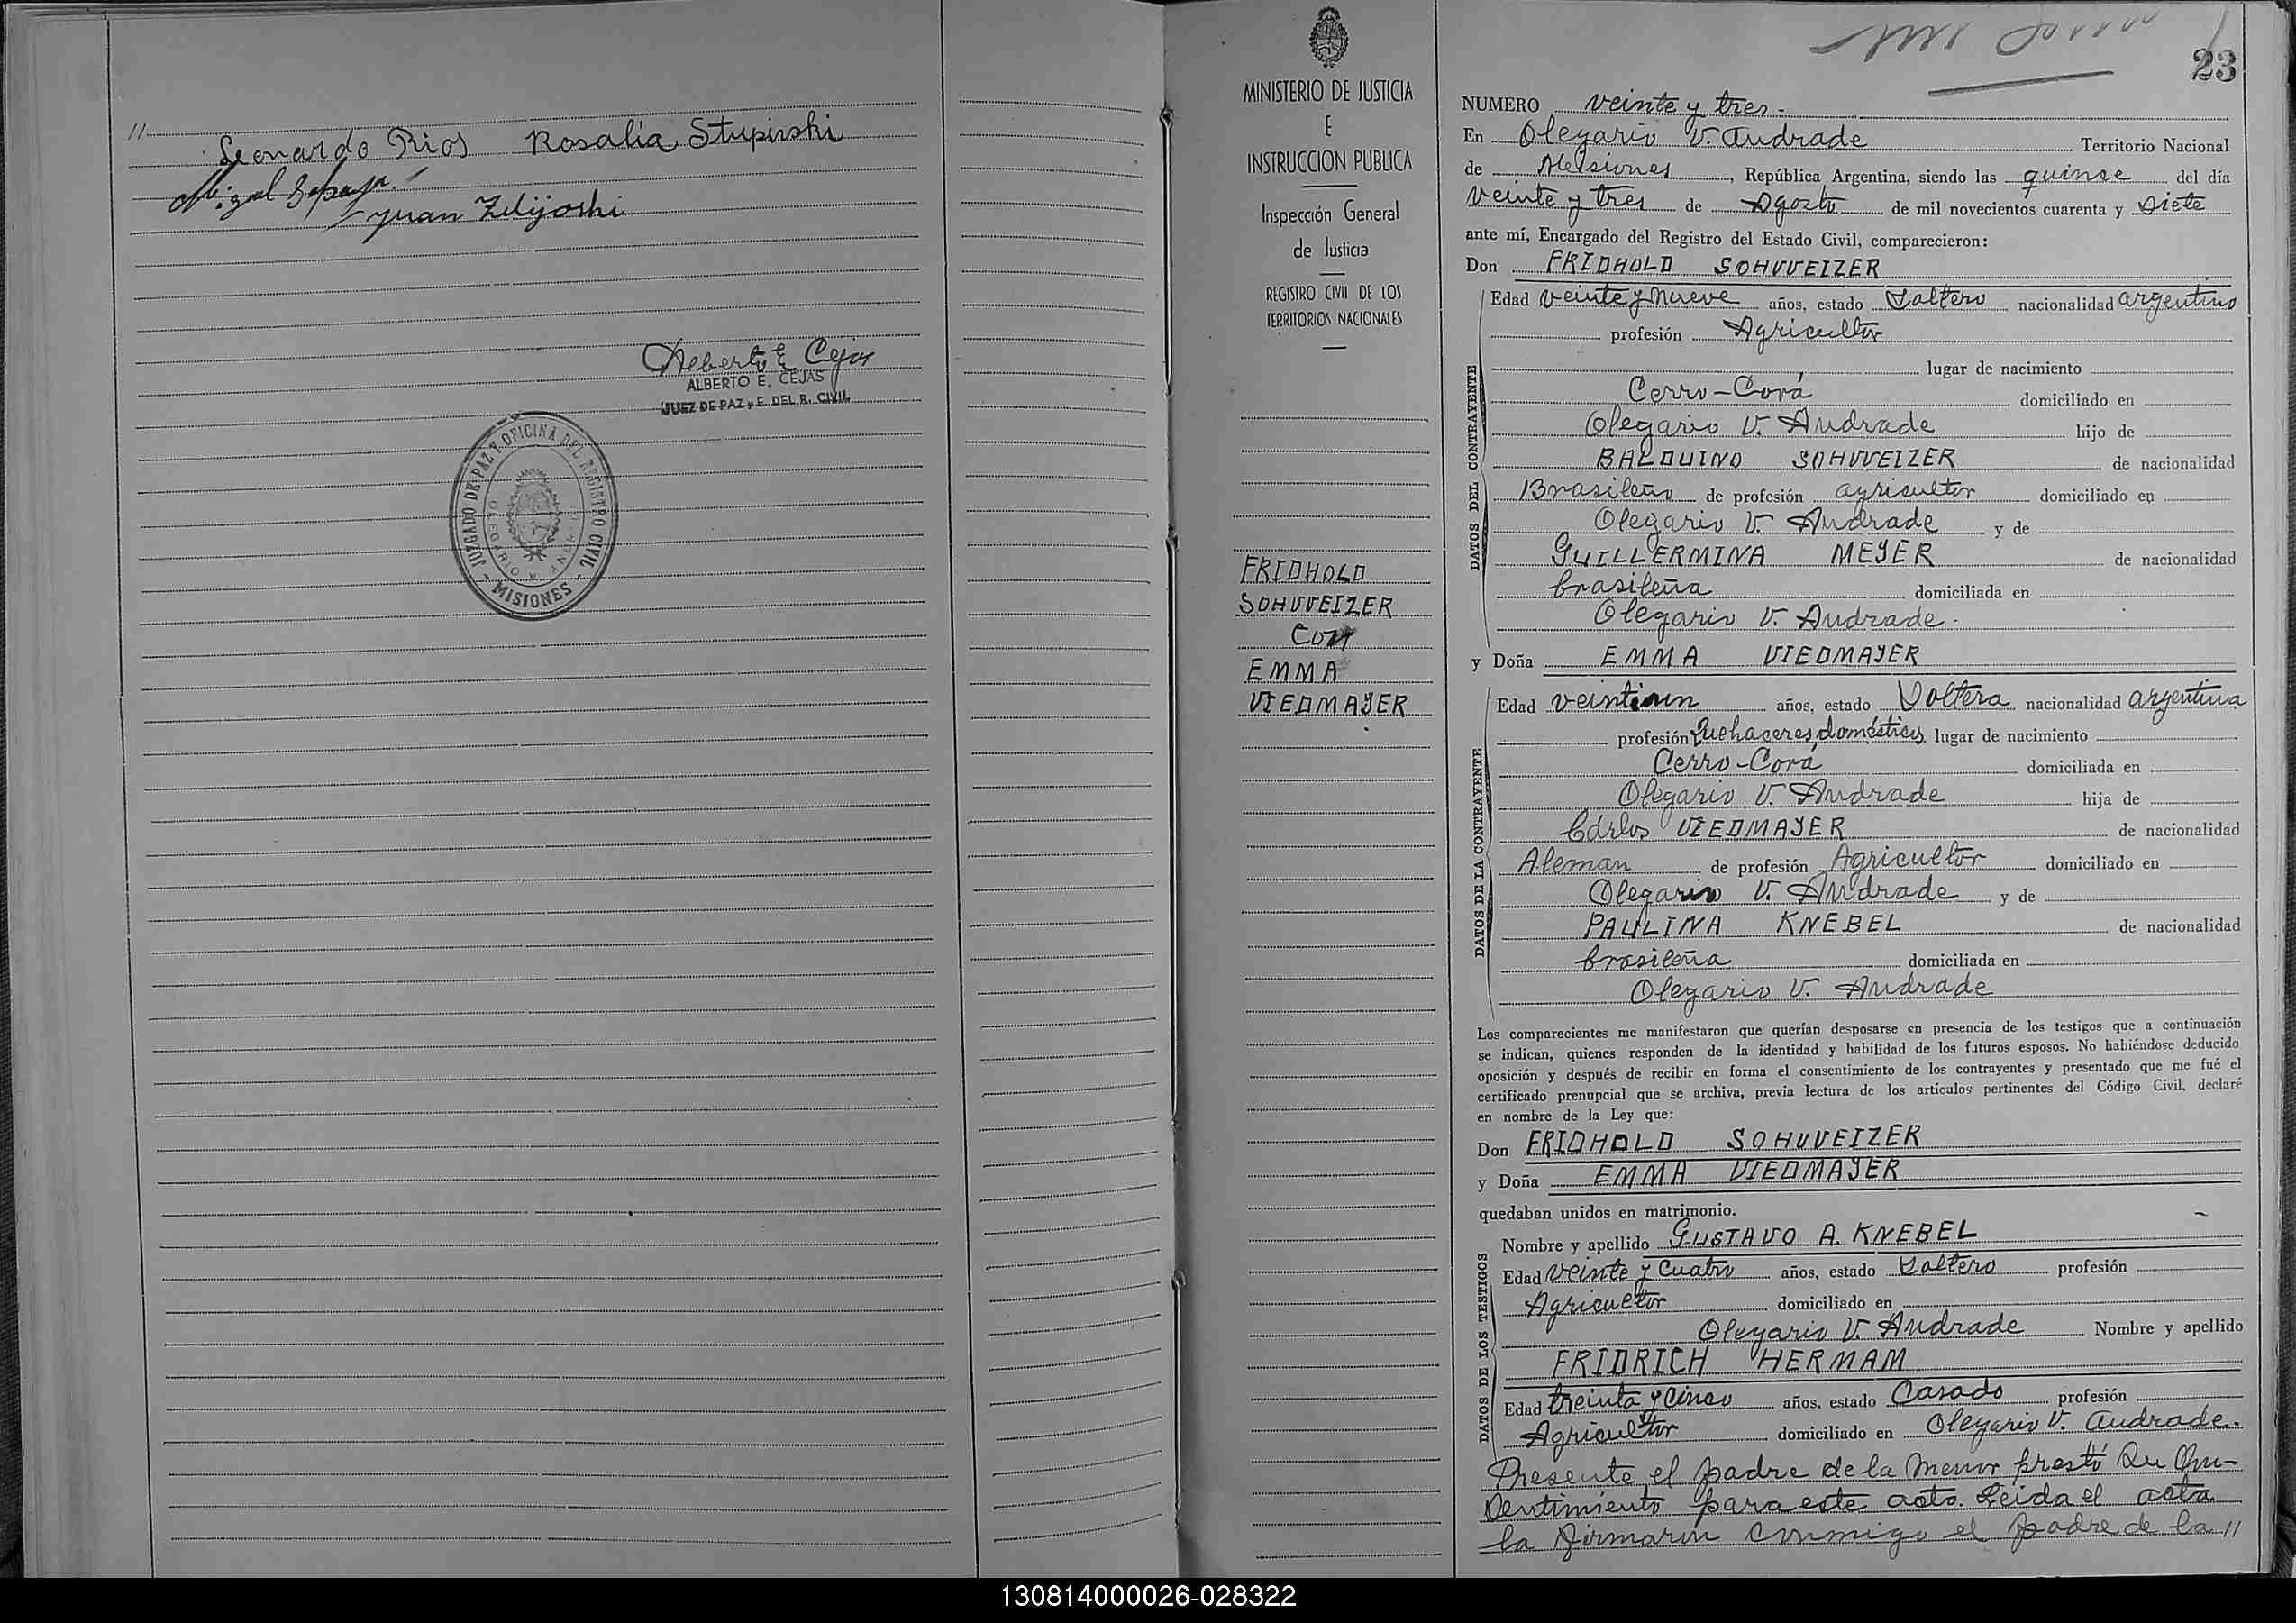 //
Leonardo Rios Rosalia Stupinski
Juan Zelijoski
Alberto E. Cejas
ALBERTO E. CEJAS
JUEZ DE PAZ y E. DEL R. CIVIL
JUZGADO DE PAZ Y OFICINA DEL REGISTRO CIVIL
OLEGARIO V. ANDRADE
- MISIONES -
MINISTERIO DE JUSTICIA
E
INSTRUCCION PUBLICA
Inspección General
de Justicia
REGISTRO CIVIL DE LOS
TERRITORIOS NACIONALES
FRIDHOLD
SOHVVEIZER
Con
EMMA
VIEDMAYER
23
NUMERO veinte y tres.
En Olegario V. Andrade Territorio Nacional
de Misiones, República Argentina, siendo las quinse del día
veinte y tres de Agosto de mil novecientos cuarenta y siete
ante mí, Encargado del Registro del Estado Civil, comparecieron:
Don FRIDHOLD SOHVVEIZER
DATOS DEL CONTRAYENTE
Edad veinte y nueve años, estado Soltero nacionalidad argentino
profesión Agricultor
lugar de nacimiento
Cerro-Corá domiciliado en
Olegario V. Andrade hijo de
BALDUINO SOHVVEIZER de nacionalidad
Brasileño de profesión agricultor domiciliado en
Olegario V. Andrade y de
GUILLERMINA MEYER de nacionalidad
brasileña domiciliada en
Olegario V. Andrade.
y Doña EMMA VIEDMAYER
DATOS DE LA CONTRAYENTE
Edad veintiun años, estado Soltera nacionalidad argentina
profesión Quehaceres domésticos lugar de nacimiento
Cerro-Corá domiciliada en
Olegario V. Andrade hija de
Cárlos VIEDMAYER de nacionalidad
Aleman de profesión Agricultor domiciliado en
Olegario V. Andrade y de
PAULINA KNEBEL de nacionalidad
brasileña domiciliada en
Olegario V. Andrade
Los comparecientes me manifestaron que querían desposarse en presencia de los testigos que a continuación
se indican, quienes responden de la identidad y habilidad de los futuros esposos. No habiéndose deducido
oposición y después de recibir en forma el consentimiento de los contrayentes y presentado que me fué el
certificado prenupcial que se archiva, previa lectura de los artículos pertinentes del Código Civil, declaré
en nombre de la Ley que:
Don FRIDHOLD SOHVVEIZER
y Doña EMMA VIEDMAYER
quedaban unidos en matrimonio.
DATOS DE LOS TESTIGOS
Nombre y apellido GUSTAVO A. KNEBEL
Edad veinte y cuatro años, estado Soltero profesión
Agricultor domiciliado en
Olegario V. Andrade Nombre y apellido
FRIDRICH HERMAM
Edad treinta y cinco años, estado Casado profesión
Agricultor domiciliado en Olegario V. Andrade.
Presente el padre de la menor prestó su con-
sentimiento para este acto. Leida el acta
la firmaron conmigo el padre de la //
130814000026-028322